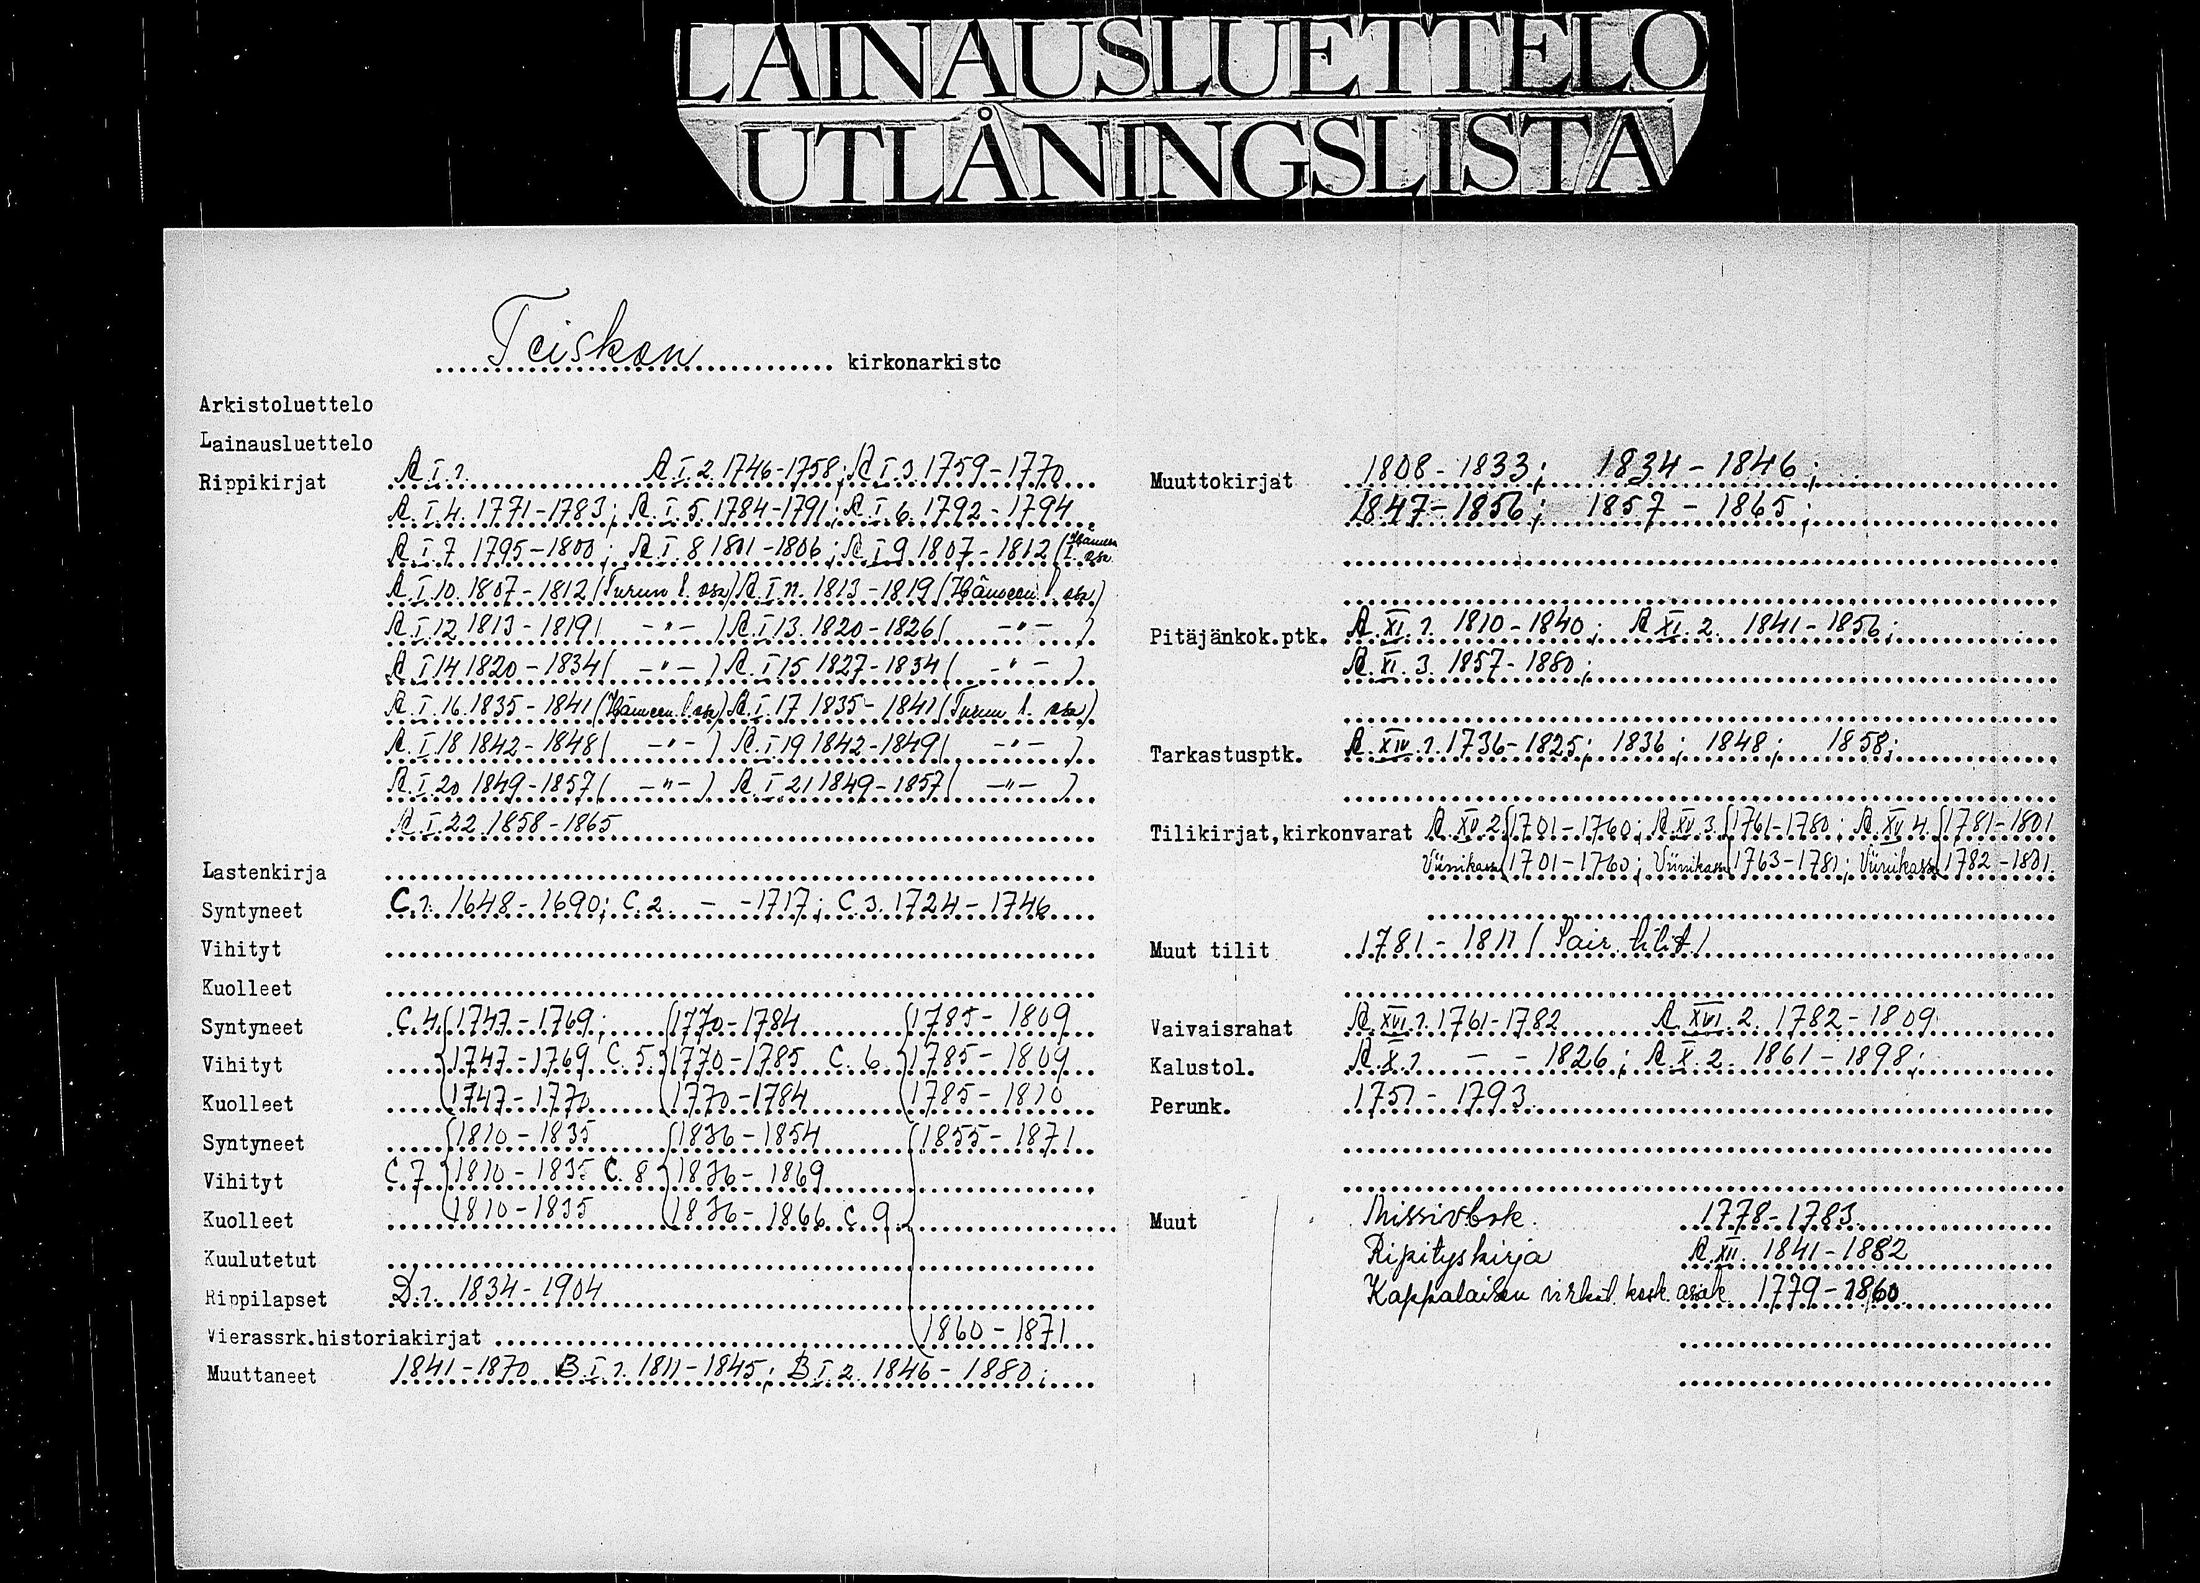 LAINAUSLUETTELO
UTLÅNINGSLISTA
Teiskon kirkonarkisto
Arkistoluettelo
Lainausluettelo
Rippikirjat A I 1. A I 2 1746-1758; A I 3. 1759-1770
A I 4. 1771-1783; A I 5 1784-1791; A I 6. 1792-1794
A I 7 1795-1800; A I 8 1801-1806; A I 9 1807-1812 (Hämeen l. osa
A I 10. 1807-1812 (Turun l. osa) A I 11. 1813-1819 (Hämeen l. osa)
A I 12 1813-1819 ( -"- ) A I 13. 1820-1826 ( -"- )
A I 14 1820-1834 ( -"- ) A I 15 1827-1834 ( -"- )
A I 16. 1835-1841 (Hämeen l. osa) A I 17 1835-1841 (Turun l. osa)
A I 18 1842-1848 ( -"- ) A I 19 1842-1849 ( -"- )
A I 20 1849-1857 ( -"- ) A I 21 1849-1857 ( -"- )
A I 22 1858-1865
Lastenkirja
Syntyneet C 1. 1648-1690; C. 2. - -1717; C 3. 1724-1746
Vihityt
Kuolleet
Syntyneet C. 4. 1747-1769; 1770-1784 1785-1809
Vihityt 1747-1769 C. 5. 1770-1785 C. 6. 1785-1809
Kuolleet 1747-1770 1770-1784 1785-1810
Syntyneet 1810-1835 1836-1854 1855-1871
Vihityt C. 7 1810-1835 C. 8 1836-1869
Kuolleet 1810-1835 1836-1866 C. 9.
Kuulutetut
Rippilapset D 1. 1834-1904
Vierassrk.historiakirjat 1860-1871
Muuttaneet 1841-1870 B I 1. 1811-1845; B I 2. 1846-1880;
Muuttokirjat 1808-1833; 1834-1846;
1847-1856; 1857-1865;
Pitäjänkok.ptk. A XI. 1. 1810-1840; A XI. 2. 1841-1856;
A XI. 3. 1857-1880;
Tarkastusptk. A XIV. 1. 1736-1825; 1836; 1848; 1858;
Tilikirjat,kirkonvarat A XV 2. 1701-1760; A XV 3. 1761-1780; A XV 4. 1781-1801
Viinikassa 1701-1760; Viinikassa 1763-1781; Viinikassa 1782-1801.
Muut tilit 1781-1811 ( tilit )
Vaivaisrahat A XVI. 1. 1761-1782 A XVI. 2. 1782-1809
Kalustol. A X. 1 - - 1826; A X. 2. 1861-1898;
Perunk. 1751-1793
Muut Missivbok. 1778-1783
Ripityskirja A XII. 1841-1882
Kappalaisen virkat. kosk. asiak. 1779-1860